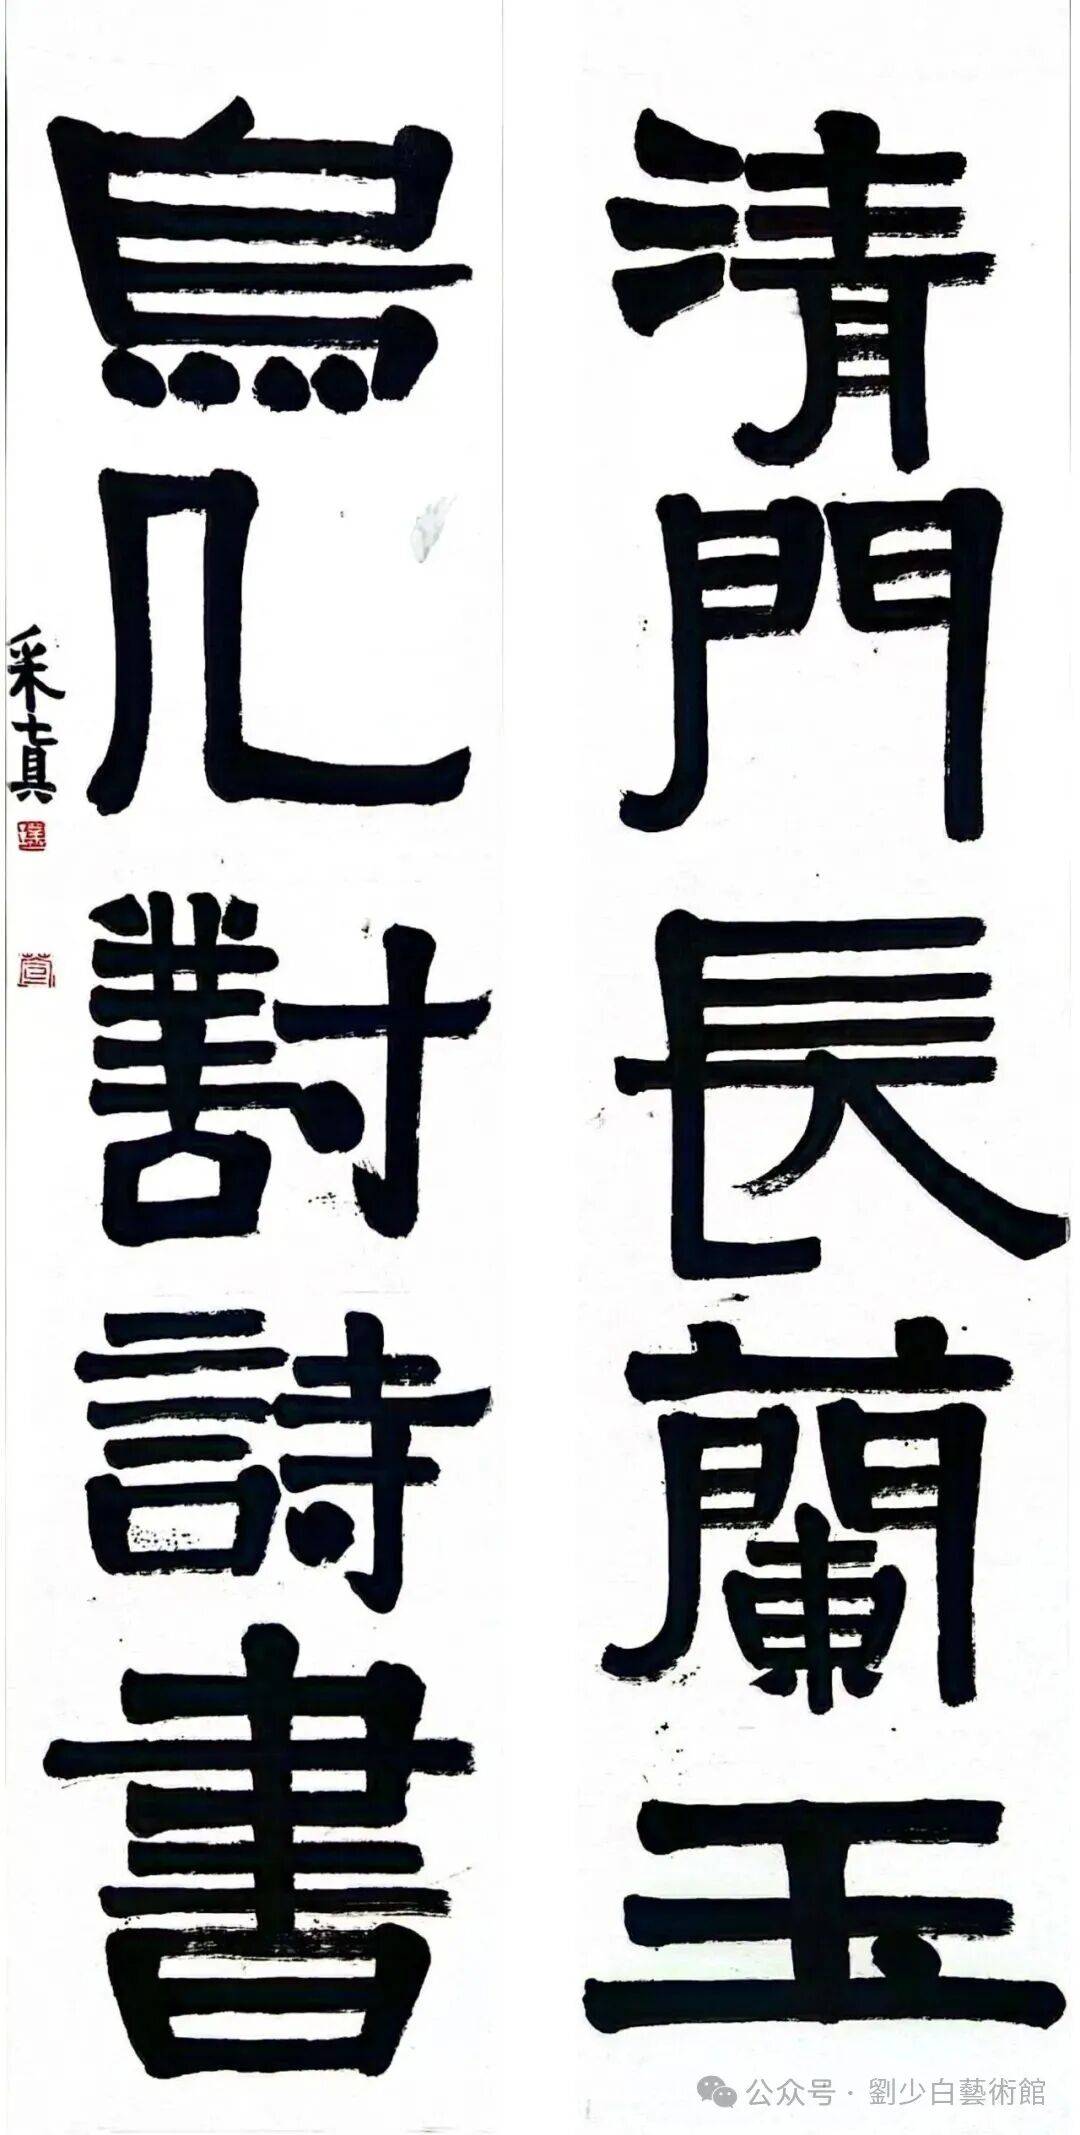 清門長蘭玉
烏几對詩書
采真
公众号·劉少白藝術館